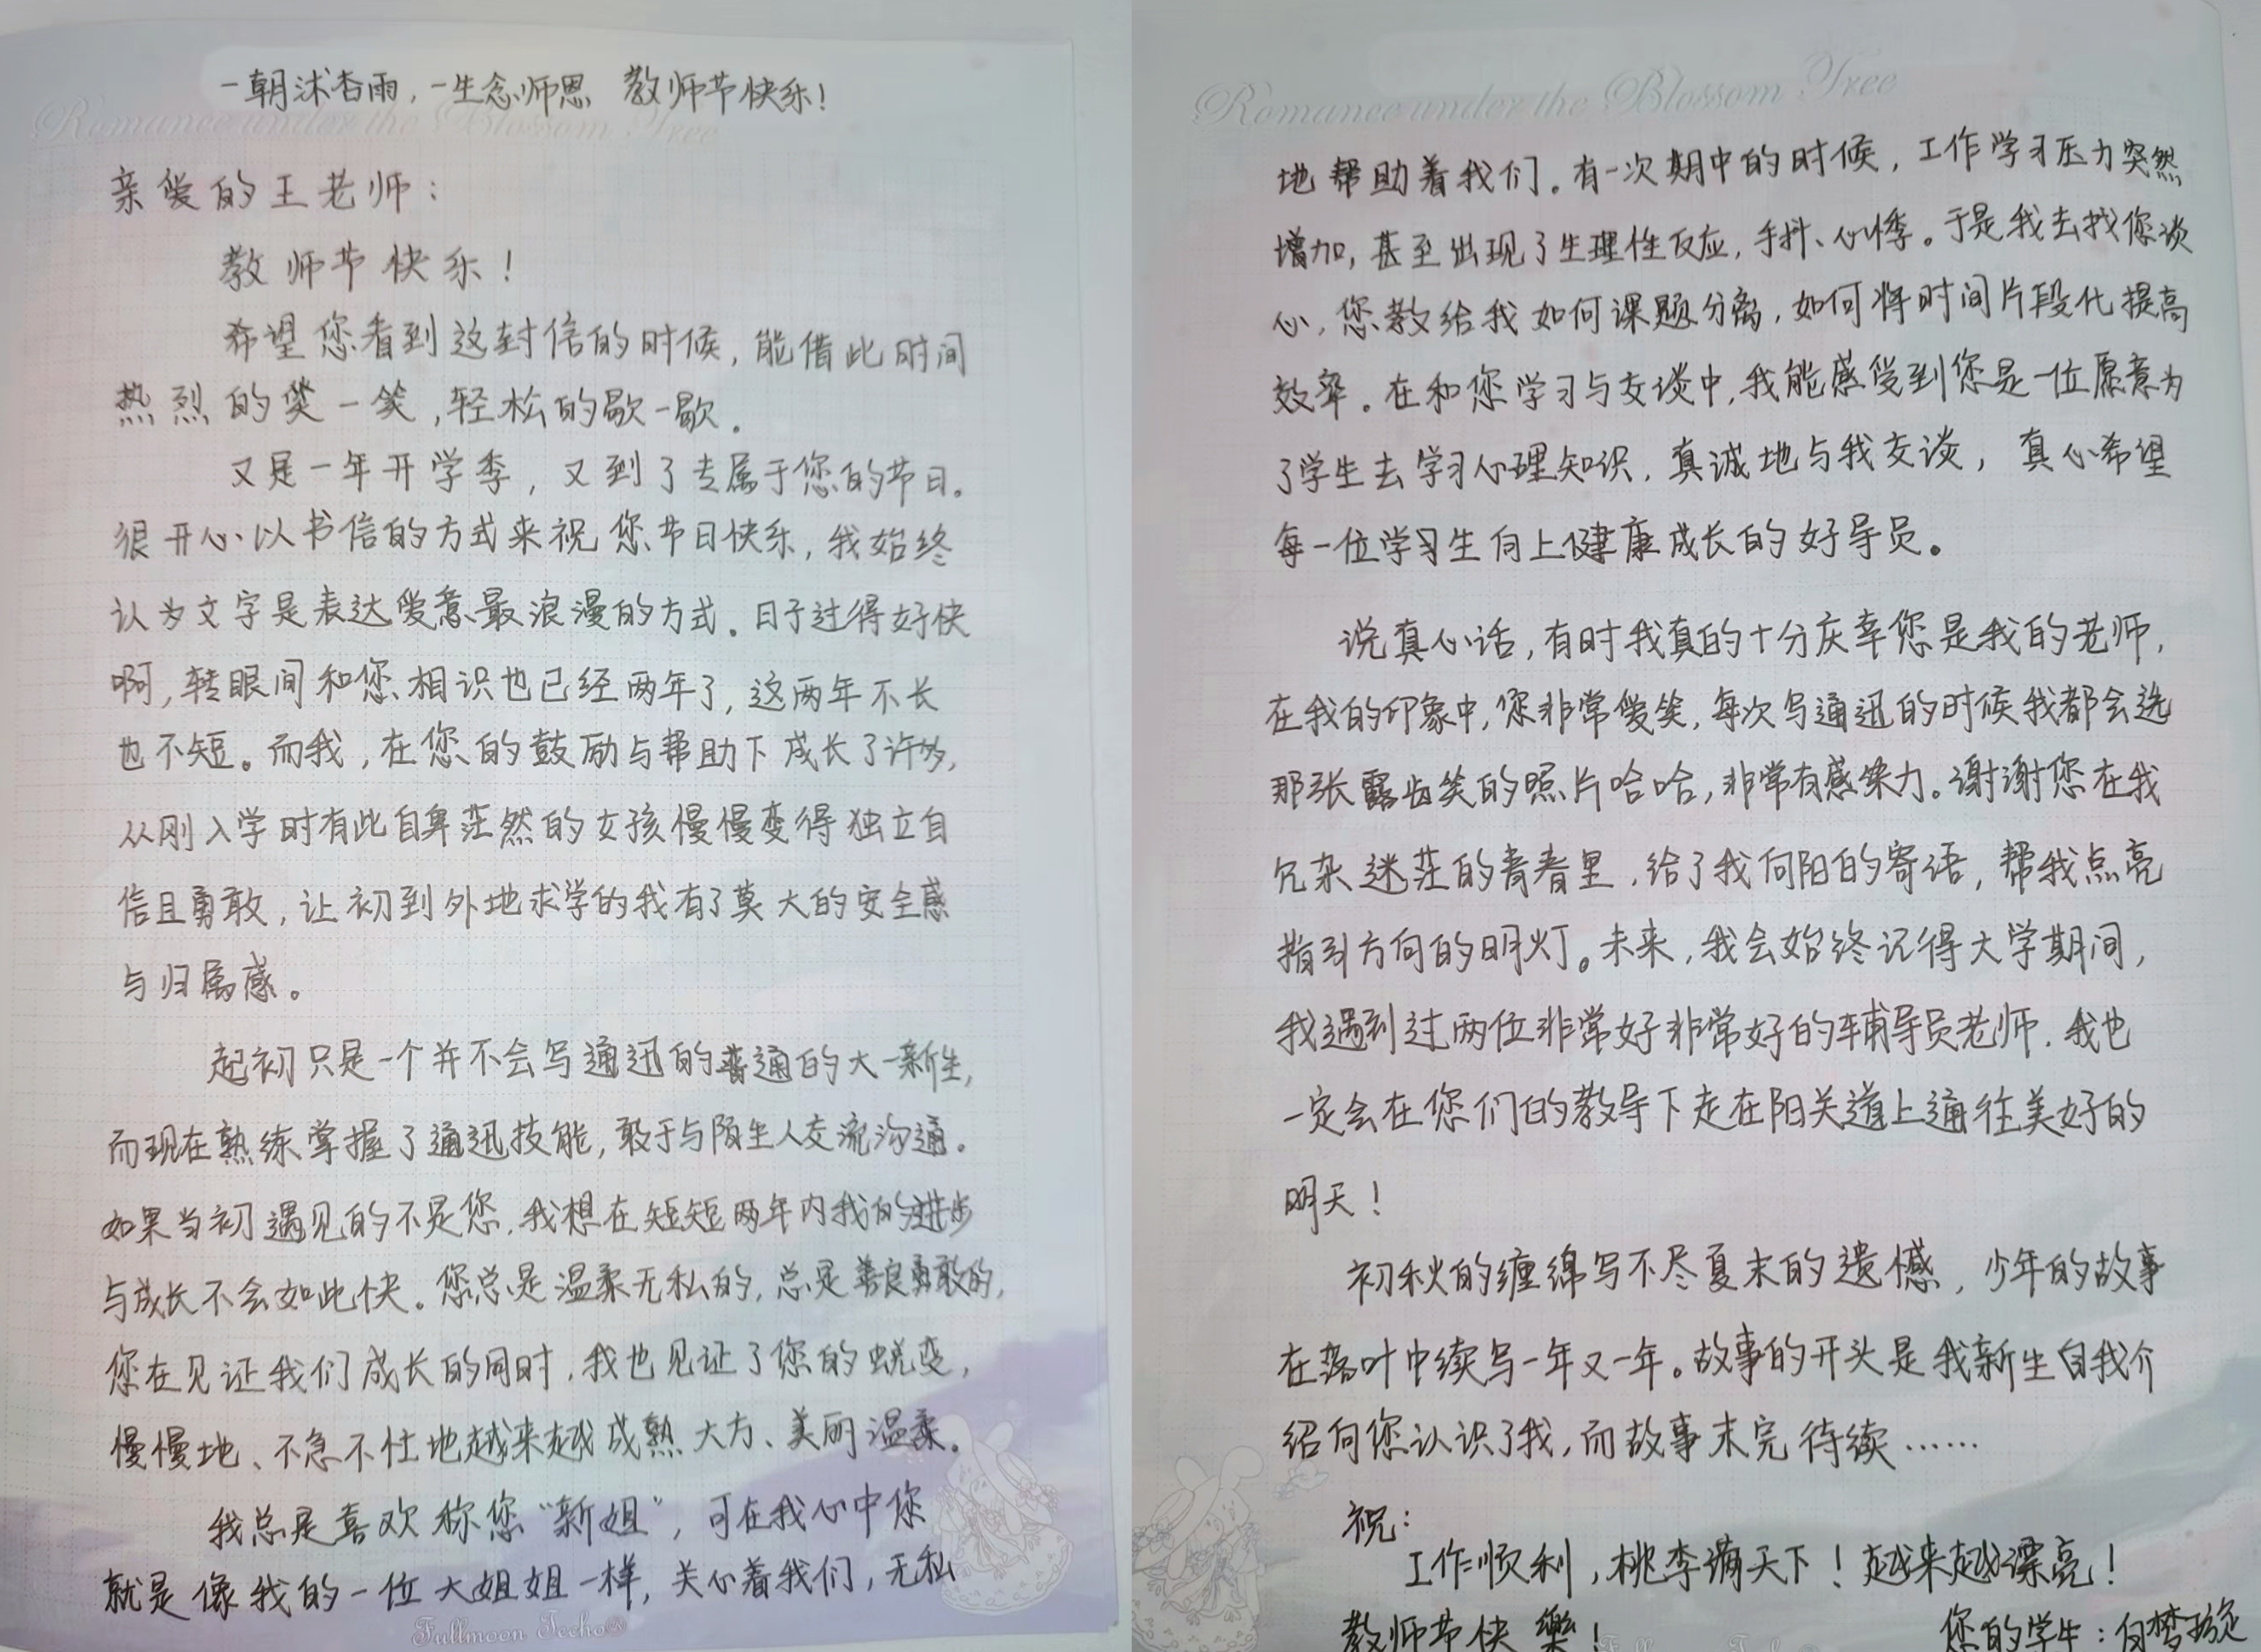 一朝沐杏雨，一生念师恩 教师节快乐！
Romance under the Blossom Tree
亲爱的王老师：
教师节快乐！
希望您看到这封信的时候，能借此时间
热烈的笑一笑，轻松的歇一歇。
又是一年开学季，又到了专属于您的节日。
很开心以书信的方式来祝您节日快乐，我始终
认为文字是表达爱意最浪漫的方式。日子过得好快
啊，转眼间和您相识也已经两年了，这两年不长
也不短。而我，在您的鼓励与帮助下成长了许多，
从刚入学时有些自卑茫然的女孩慢慢变得独立自
信且勇敢，让初到外地求学的我有了莫大的安全感
与归属感。
起初只是一个并不会写通迅的普通的大一新生，
而现在熟练掌握了通迅技能，敢于与陌生人交流沟通。
如果当初遇见的不是您，我想在短短两年内我的进步
与成长不会如此快。您总是温柔无私的，总是善良勇敢的，
您在见证我们成长的同时，我也见证了您的蜕变，
慢慢地、不急不忙地越来越成熟大方、美丽温柔。
我总是喜欢称您“新姐”，可在我心中您
就是像我的一位大姐姐一样，关心着我们，无私
Fullmoon Techo®
Romance under the Blossom Tree
地帮助着我们。有一次期中的时候，工作学习压力突然
增加，甚至出现了生理性反应，手抖、心悸。于是我去找您谈
心，您教给我如何课题分离，如何将时间片段化提高
效率。在和您学习与交谈中，我能感受到您是一位愿意为
了学生去学习心理知识，真诚地与我交谈，真心希望
每一位学习生向上健康成长的好导员。
说真心话，有时我真的十分庆幸您是我的老师，
在我的印象中，您非常爱笑，每次写通迅的时候我都会选
那张露齿笑的照片哈哈，非常有感染力。谢谢您在我
冗杂迷茫的青春里，给了我向阳的寄语，帮我点亮
指引方向的明灯。未来，我会始终记得大学期间，
我遇到过两位非常好非常好的辅导员老师，我也
一定会在您们的教导下走在阳关道上通往美好的
明天！
初秋的缠绵写不尽夏末的遗憾，少年的故事
在落叶中续写一年又一年。故事的开头是我新生自我介
绍向您认识了我，而故事未完待续……
祝：
工作顺利，桃李满天下！越来越漂亮！
教师节快樂！
您的学生：向梦璇